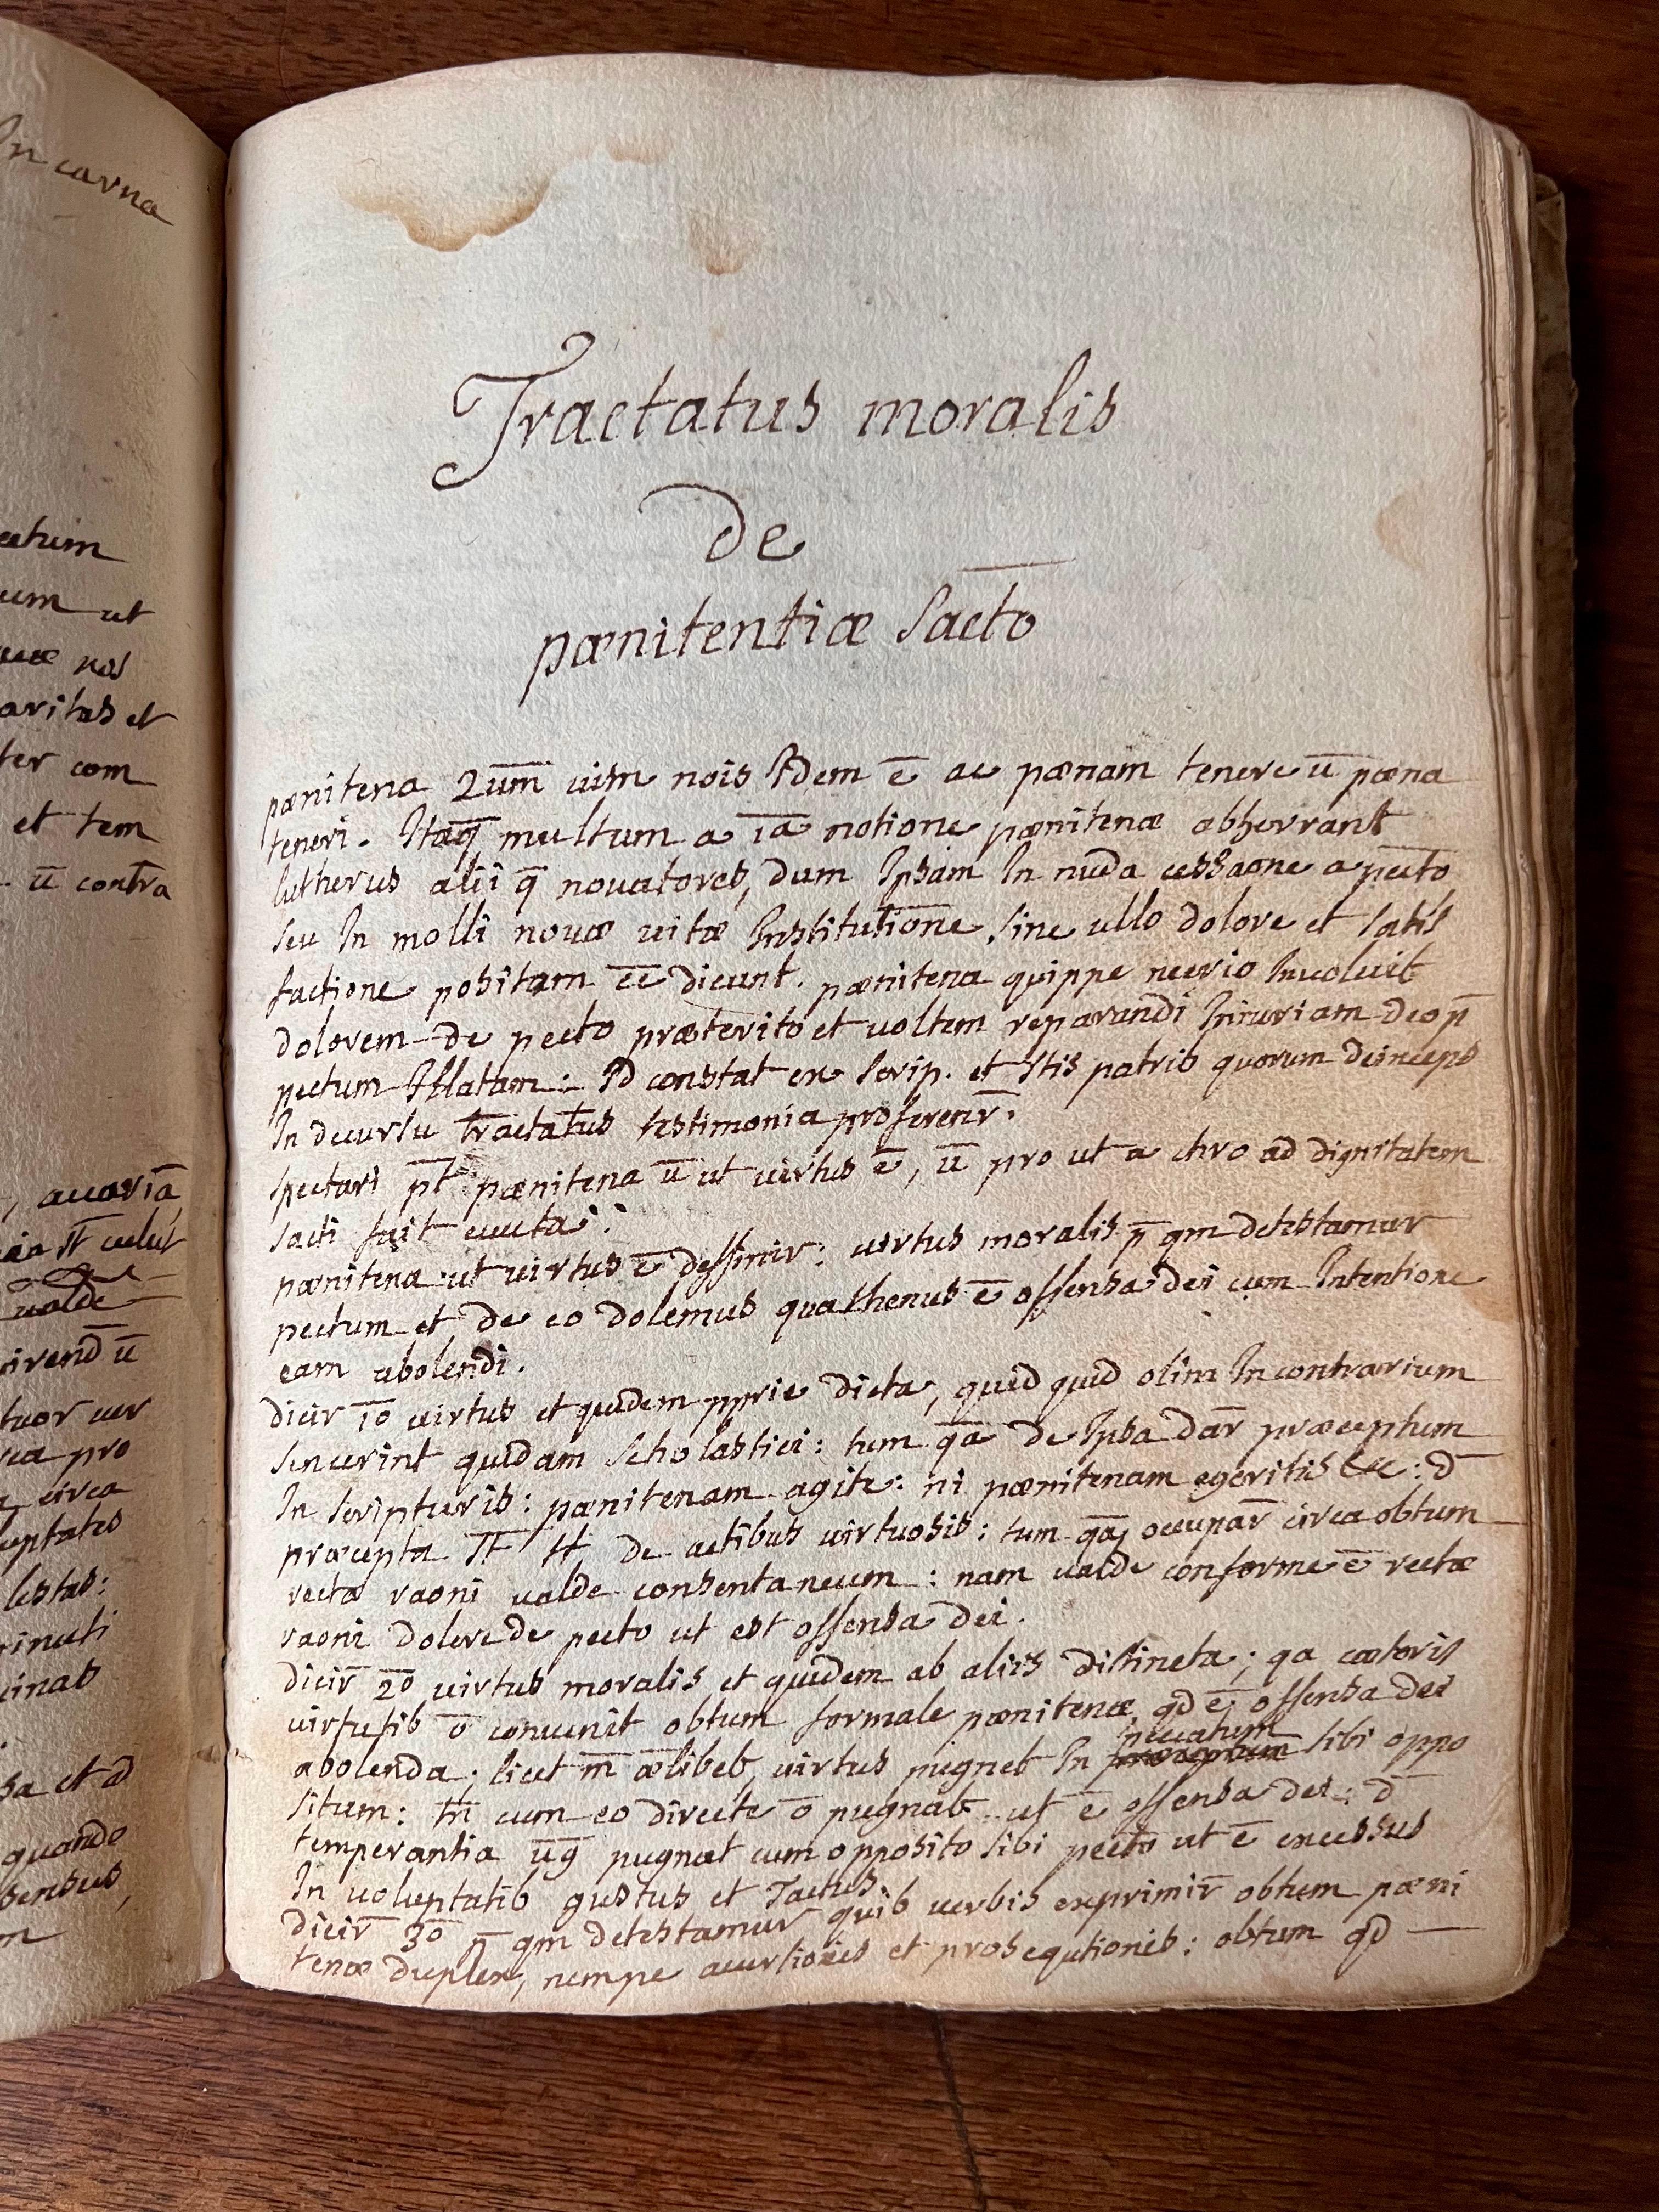 In carna
ectum
um ut
quæ nos
aritas et
ter com
et tem
ū contra
, avariā
valde
tuor ver
ea pro
circa
uptates
lestas:
sa et d̄
quando
sensus,
Tractatus moralis
De
pænitentiæ Sacto
pænitena 2um̄ vim nois Idem ē ac pænam tenere ū pæna
teneri. Itaq̄ multum a īa notione pænitenæ abherrant
lutherus alii q̄ novatores, dum Ipsam In nuda cessaone a pecto
seu In molli novæ vitæ Institutione, sine ullo dolore et satis
factione positam ēē dicunt. pænitena quippe neerio Involvit
dolorem de pecto præterito et voltem reparandi Iniuriam deo p̄
pectum Illatam: Id constat ex scrip. et Stis patrib quorum deinceps
In decursu tractatus testimonia proferenr̄.
spectari pt̄ pænitena ū ut virtus ē, ū pro ut a chro ad dignitatem
sacti fuit evecta:
pænitena ut virtus ē deffinir: virtus moralis p̄ qm detestamur
pectum et de eo dolemus quathenus ē offensa dei cum Intentione
eam abolendi.
dicir 1o virtus et quidem pprie dicta, quid quid olim In contrarium
senserint quidam scholastici: tum qā de Ipsa dar̄ præceptum
In scripturis: pænitenam agite: ni pænitenam egeritis &c: d̄
præcepta tt̄ tt de actibus virtuosis: tum qā occupar̄ circa obtum
rectæ raoni valde consentaneum: nam valde conforme ē rectæ
raoni dolere de pecto ut est offensa dei.
dicir̄ 2o virtus moralis et quidem ab aliis distincta; qa cæteris
virtutib ō convenit obtum formale pænitenæ, qd ē offensa dei
abolenda; licet m̄ ælibet virtus pugnet In peccatum sibi oppo
situm: tn̄ cum eo directe ō pugnat ut ē offensa dei: d̄
temperantia ūg pugnat cum opposito sibi pecto ut ē excessus
In voluptatib gustus et tactus.
dicir̄ 3o p̄ qm detestamur quib verbis exprimir̄ obtum pæni
tenæ duplex, nempe aversiones et prosequtiones: obtum qd